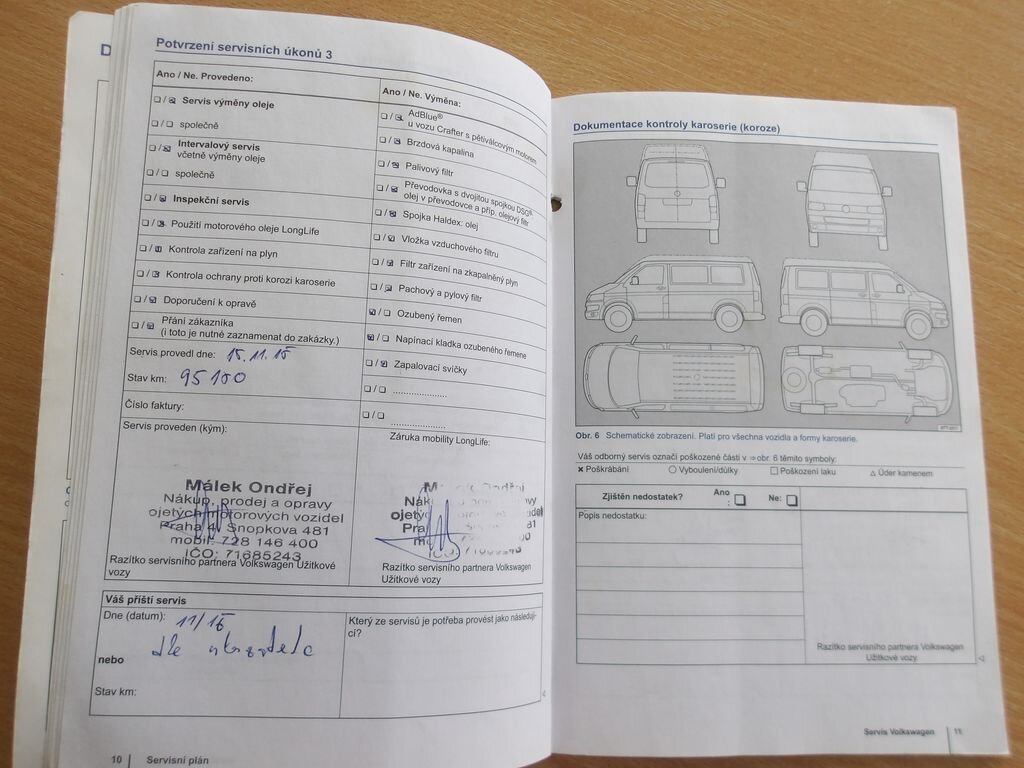 D
Potvrzení servisních úkonů 3
Ano / Ne. Provedeno:
❑ / ❑ Servis výměny oleje
❑ / ❑ společně
❑ / ❑ Intervalový servis
včetně výměny oleje
❑ / ❑ společně
❑ / ❑ Inspekční servis
❑ / ❑ Použití motorového oleje LongLife
❑ / ❑ Kontrola zařízení na plyn
❑ / ❑ Kontrola ochrany proti korozi karoserie
❑ / ❑ Doporučení k opravě
❑ / ❑ Přání zákazníka
(i toto je nutné zaznamenat do zakázky.)
Servis provedl dne: 15.11.15
Stav km: 95100
Číslo faktury:
Servis proveden (kým):
Málek Ondřej
Nákup, prodej a opravy
ojetých motorových vozidel
Praha 4, Snopkova 481
mobil: 728 146 400
IČO: 71685243
Razítko servisního partnera Volkswagen Užitkové
vozy
Ano / Ne. Výměna:
❑ / ❑ AdBlue®
u vozu Crafter s pětiválcovým motorem
❑ / ❑ Brzdová kapalina
❑ / ❑ Palivový filtr
❑ / ❑ Převodovka s dvojitou spojkou DSG®
olej v převodovce a příp. olejový filtr
❑ / ❑ Spojka Haldex: olej
❑ / ❑ Vložka vzduchového filtru
❑ / ❑ Filtr zařízení na zkapalněný plyn
❑ / ❑ Pachový a pylový filtr
❑ / ❑ Ozubený řemen
❑ / ❑ Napínací kladka ozubeného řemene
❑ / ❑ Zapalovací svíčky
❑ / ❑ .....................
❑ / ❑ .....................
Záruka mobility LongLife:
Razítko servisního partnera Volkswagen
Užitkové vozy
Váš příští servis
Dne (datum): 11/16
dle ukazatele
nebo
Stav km:
Který ze servisů je potřeba provést jako následují-
cí?
10 Servisní plán
Dokumentace kontroly karoserie (koroze)
Obr. 6 Schematické zobrazení. Platí pro všechna vozidla a formy karoserie.
Váš odborný servis označí poškozené části v ⇒ obr. 6 těmito symboly:
× Poškrábání ○ Vyboulení/důlky □ Poškození laku △ Úder kamenem
Zjištěn nedostatek? Ano : ❑ Ne: ❑
Popis nedostatku:
Razítko servisního partnera Volkswagen
Užitkové vozy
Servis Volkswagen 11